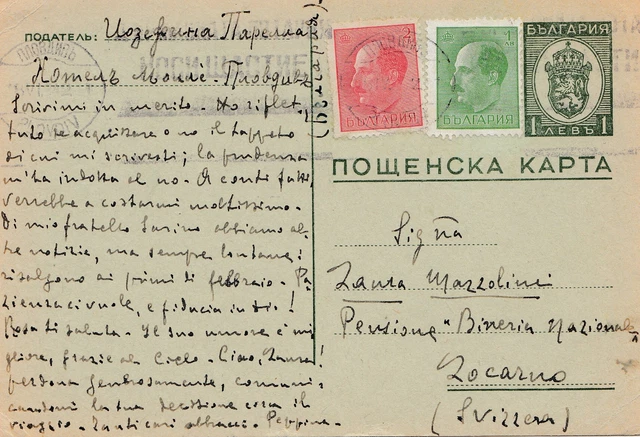 ПОДАТЕЛЬ: Иозефина Парелла
Хотелъ Молле - Пловдивъ
(България)
Scrivimi in merito. Ho riflet-
tuto se acquistare o no il tappeto
di cui mi scrivesti; la prudenza
m'ha indotta al no. A conti fatti,
verrebbe a costarmi moltissimo.
Di mio fratello Savino abbiamo al-
tre notizie, ma sempre lontane:
risalgono ai primi di febbraio. Pa-
zienza ci vuole, e fiducia in Dio!
Rosa ti saluta. Il suo umore è mi-
gliore, grazie al Cielo. Ciao, Laura!
perdona generosamente, comuni-
candomi la tua decisione circa il
viaggio. Tanti cari abbracci. Peppina.
2
БЪЛГАРИЯ
1
ЛЕВ
БЪЛГАРИЯ
БЪЛГАРИЯ
1 ЛЕВЪ 1
ПОЩЕНСКА КАРТА
Sigña
Laura Mazzolini
Pensione "Bineria Nazionale"
Locarno
(Svizzera)
ПЛОВДИВЪ